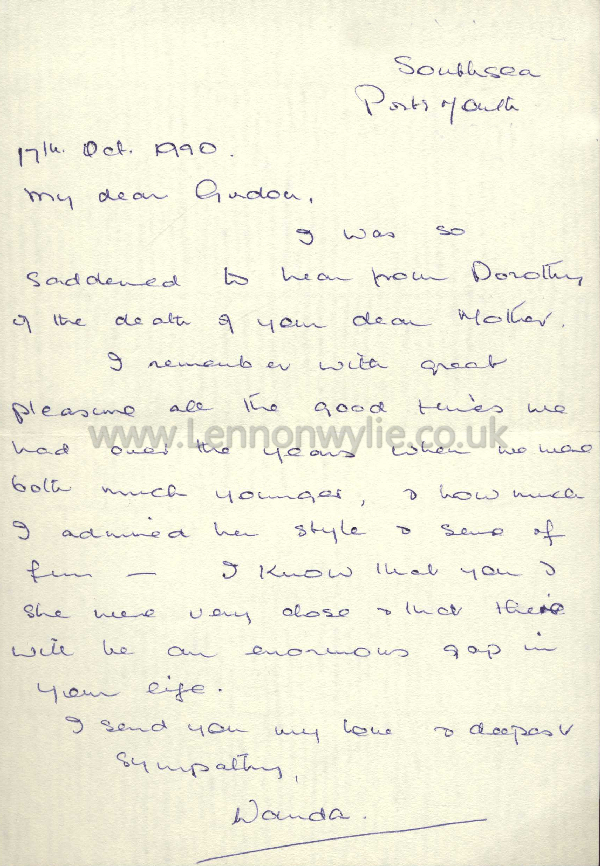 Southsea
Portsmouth
17th. Oct. 1990.
My dear Gordon,
I was so
saddened to hear from Dorothy
of the death of your dear Mother.
I remember with great
pleasure all the good times we
www.Lennonwylie.co.uk
had over the years when we were
both much younger, & how much
I admired her style & sense of
fun — I know that you &
she were very close & that there
will be an enormous gap in
your life.
I send you my love & deepest
sympathy,
Wanda.